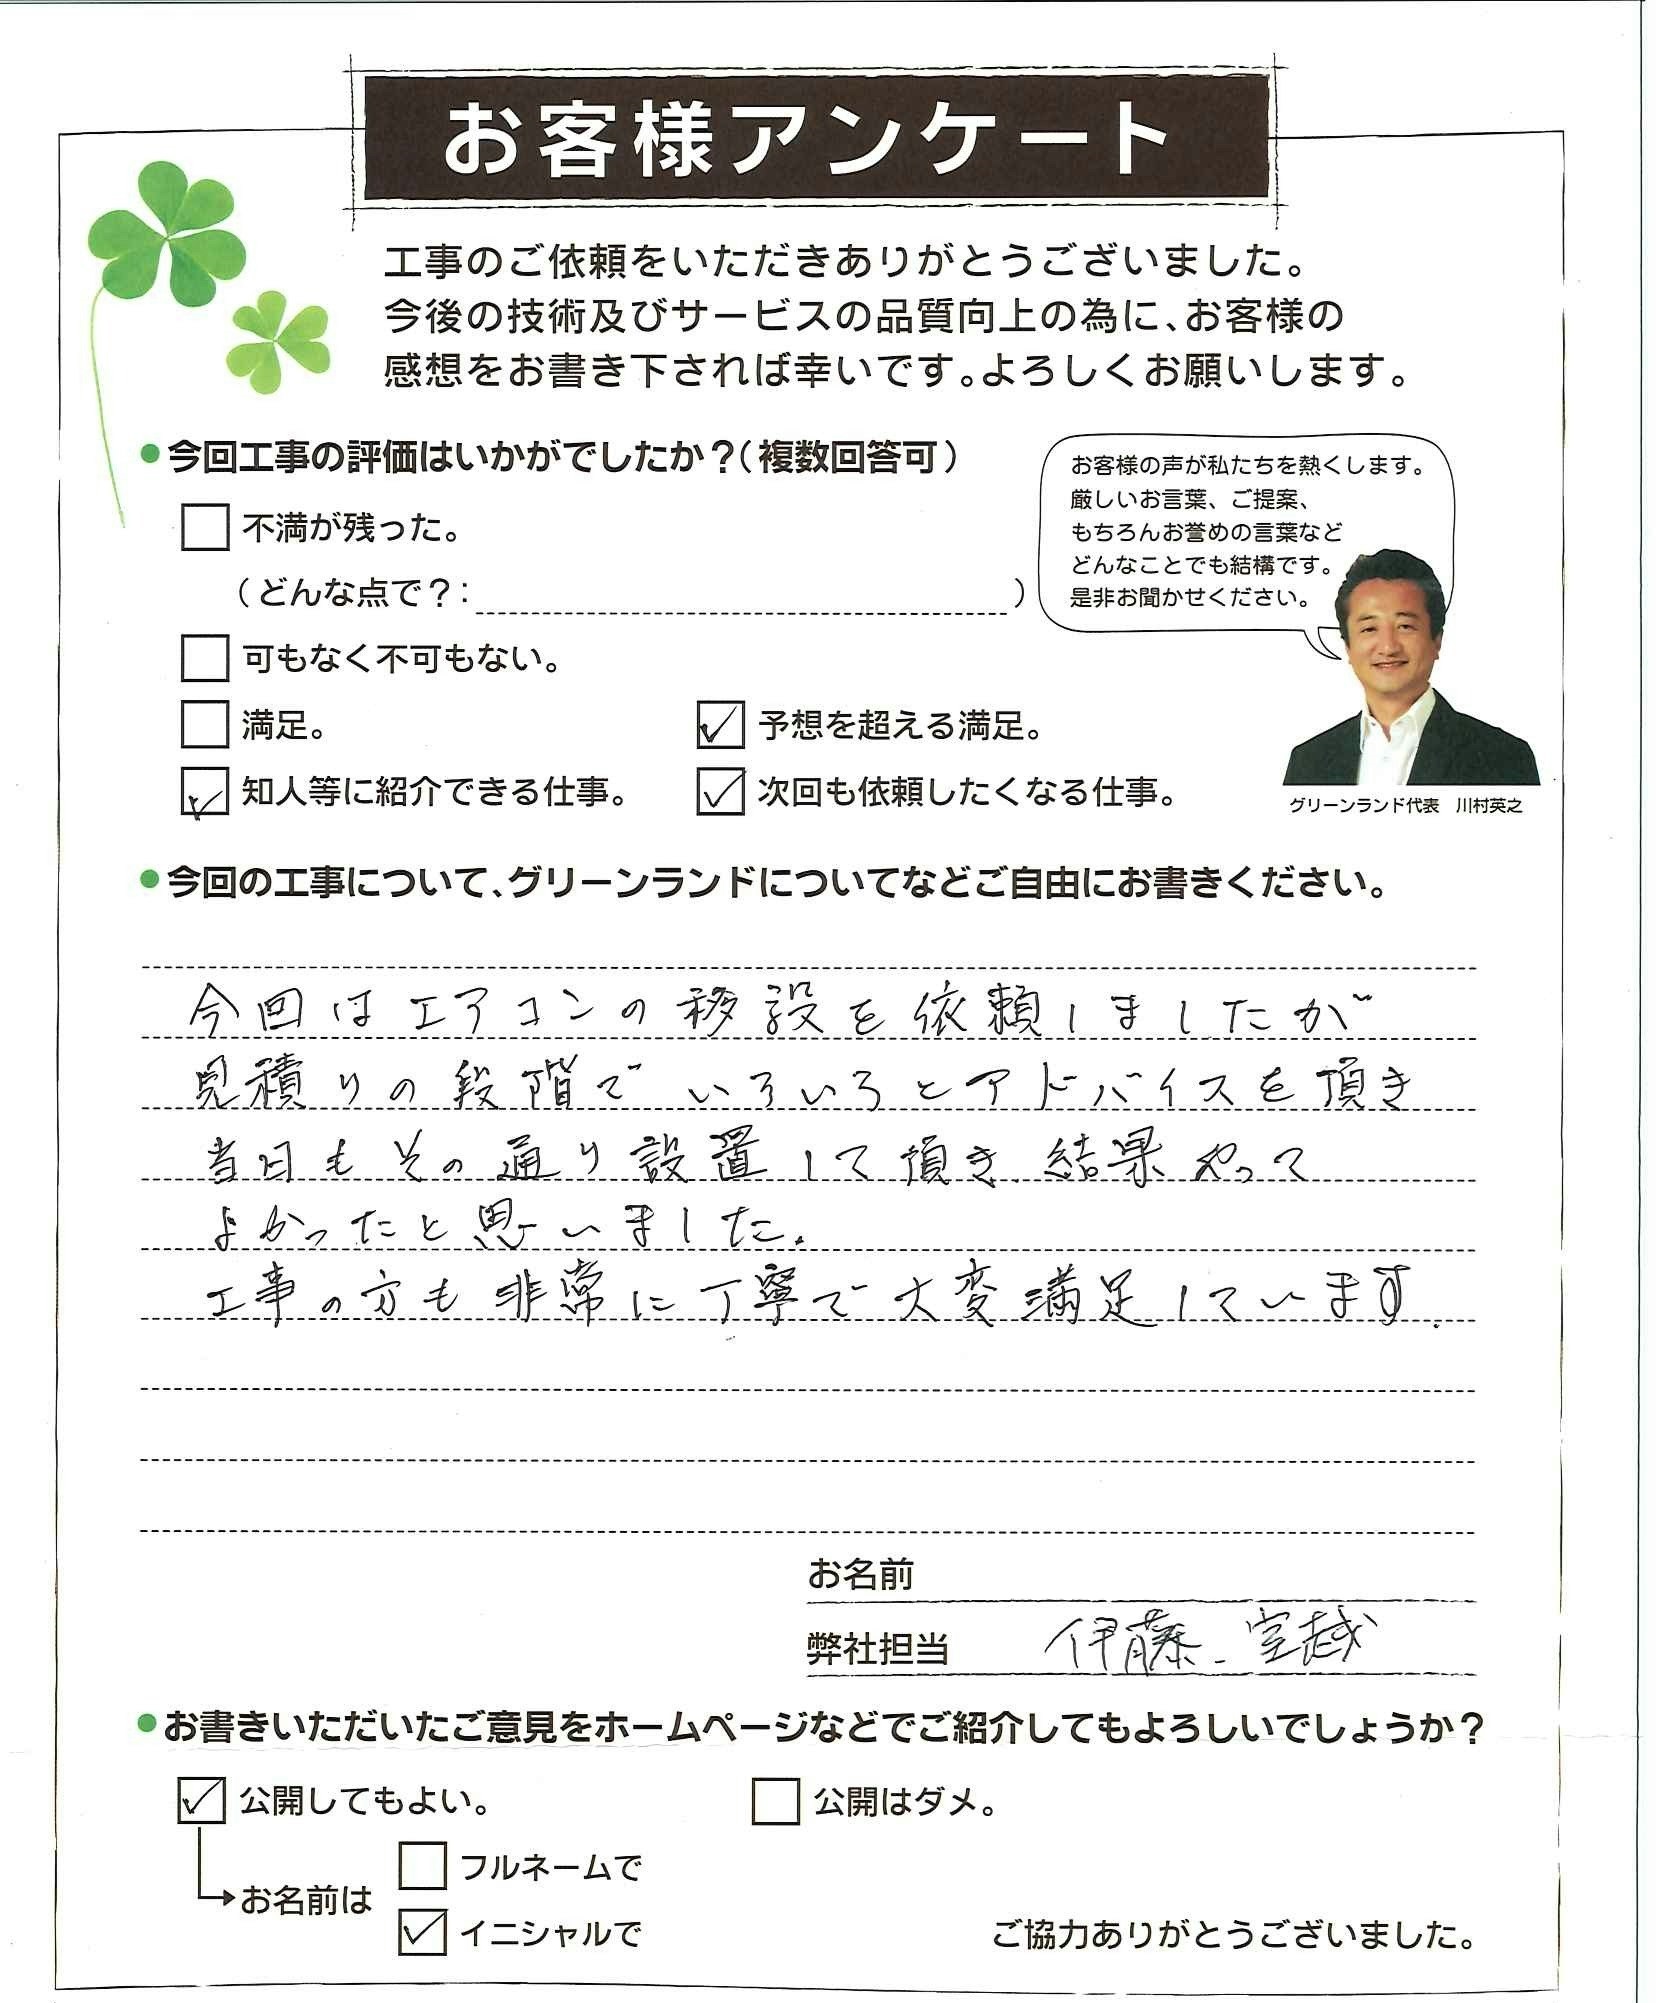 お客様アンケート
工事のご依頼をいただきありがとうございました。
今後の技術及びサービスの品質向上の為に、お客様の
感想をお書き下されば幸いです。よろしくお願いします。
今回工事の評価はいかがでしたか？（複数回答可）
不満が残った。
（どんな点で？： ）
可もなく不可もない。
満足。
予想を超える満足。
知人等に紹介できる仕事。
次回も依頼したくなる仕事。
お客様の声が私たちを熱くします。
厳しいお言葉、ご提案、
もちろんお誉めの言葉など
どんなことでも結構です。
是非お聞かせください。
グリーンランド代表　川村英之
今回の工事について、グリーンランドについてなどご自由にお書きください。
今回はエアコンの移設を依頼しましたが
見積りの段階でいろいろとアドバイスを頂き
当日もその通り設置して頂き、結果やって
よかったと思いました。
工事の方も非常に丁寧で大変満足しています。
お名前
弊社担当　伊藤、宮越
お書きいただいたご意見をホームページなどでご紹介してもよろしいでしょうか？
公開してもよい。
公開はダメ。
お名前は
フルネームで
イニシャルで
ご協力ありがとうございました。